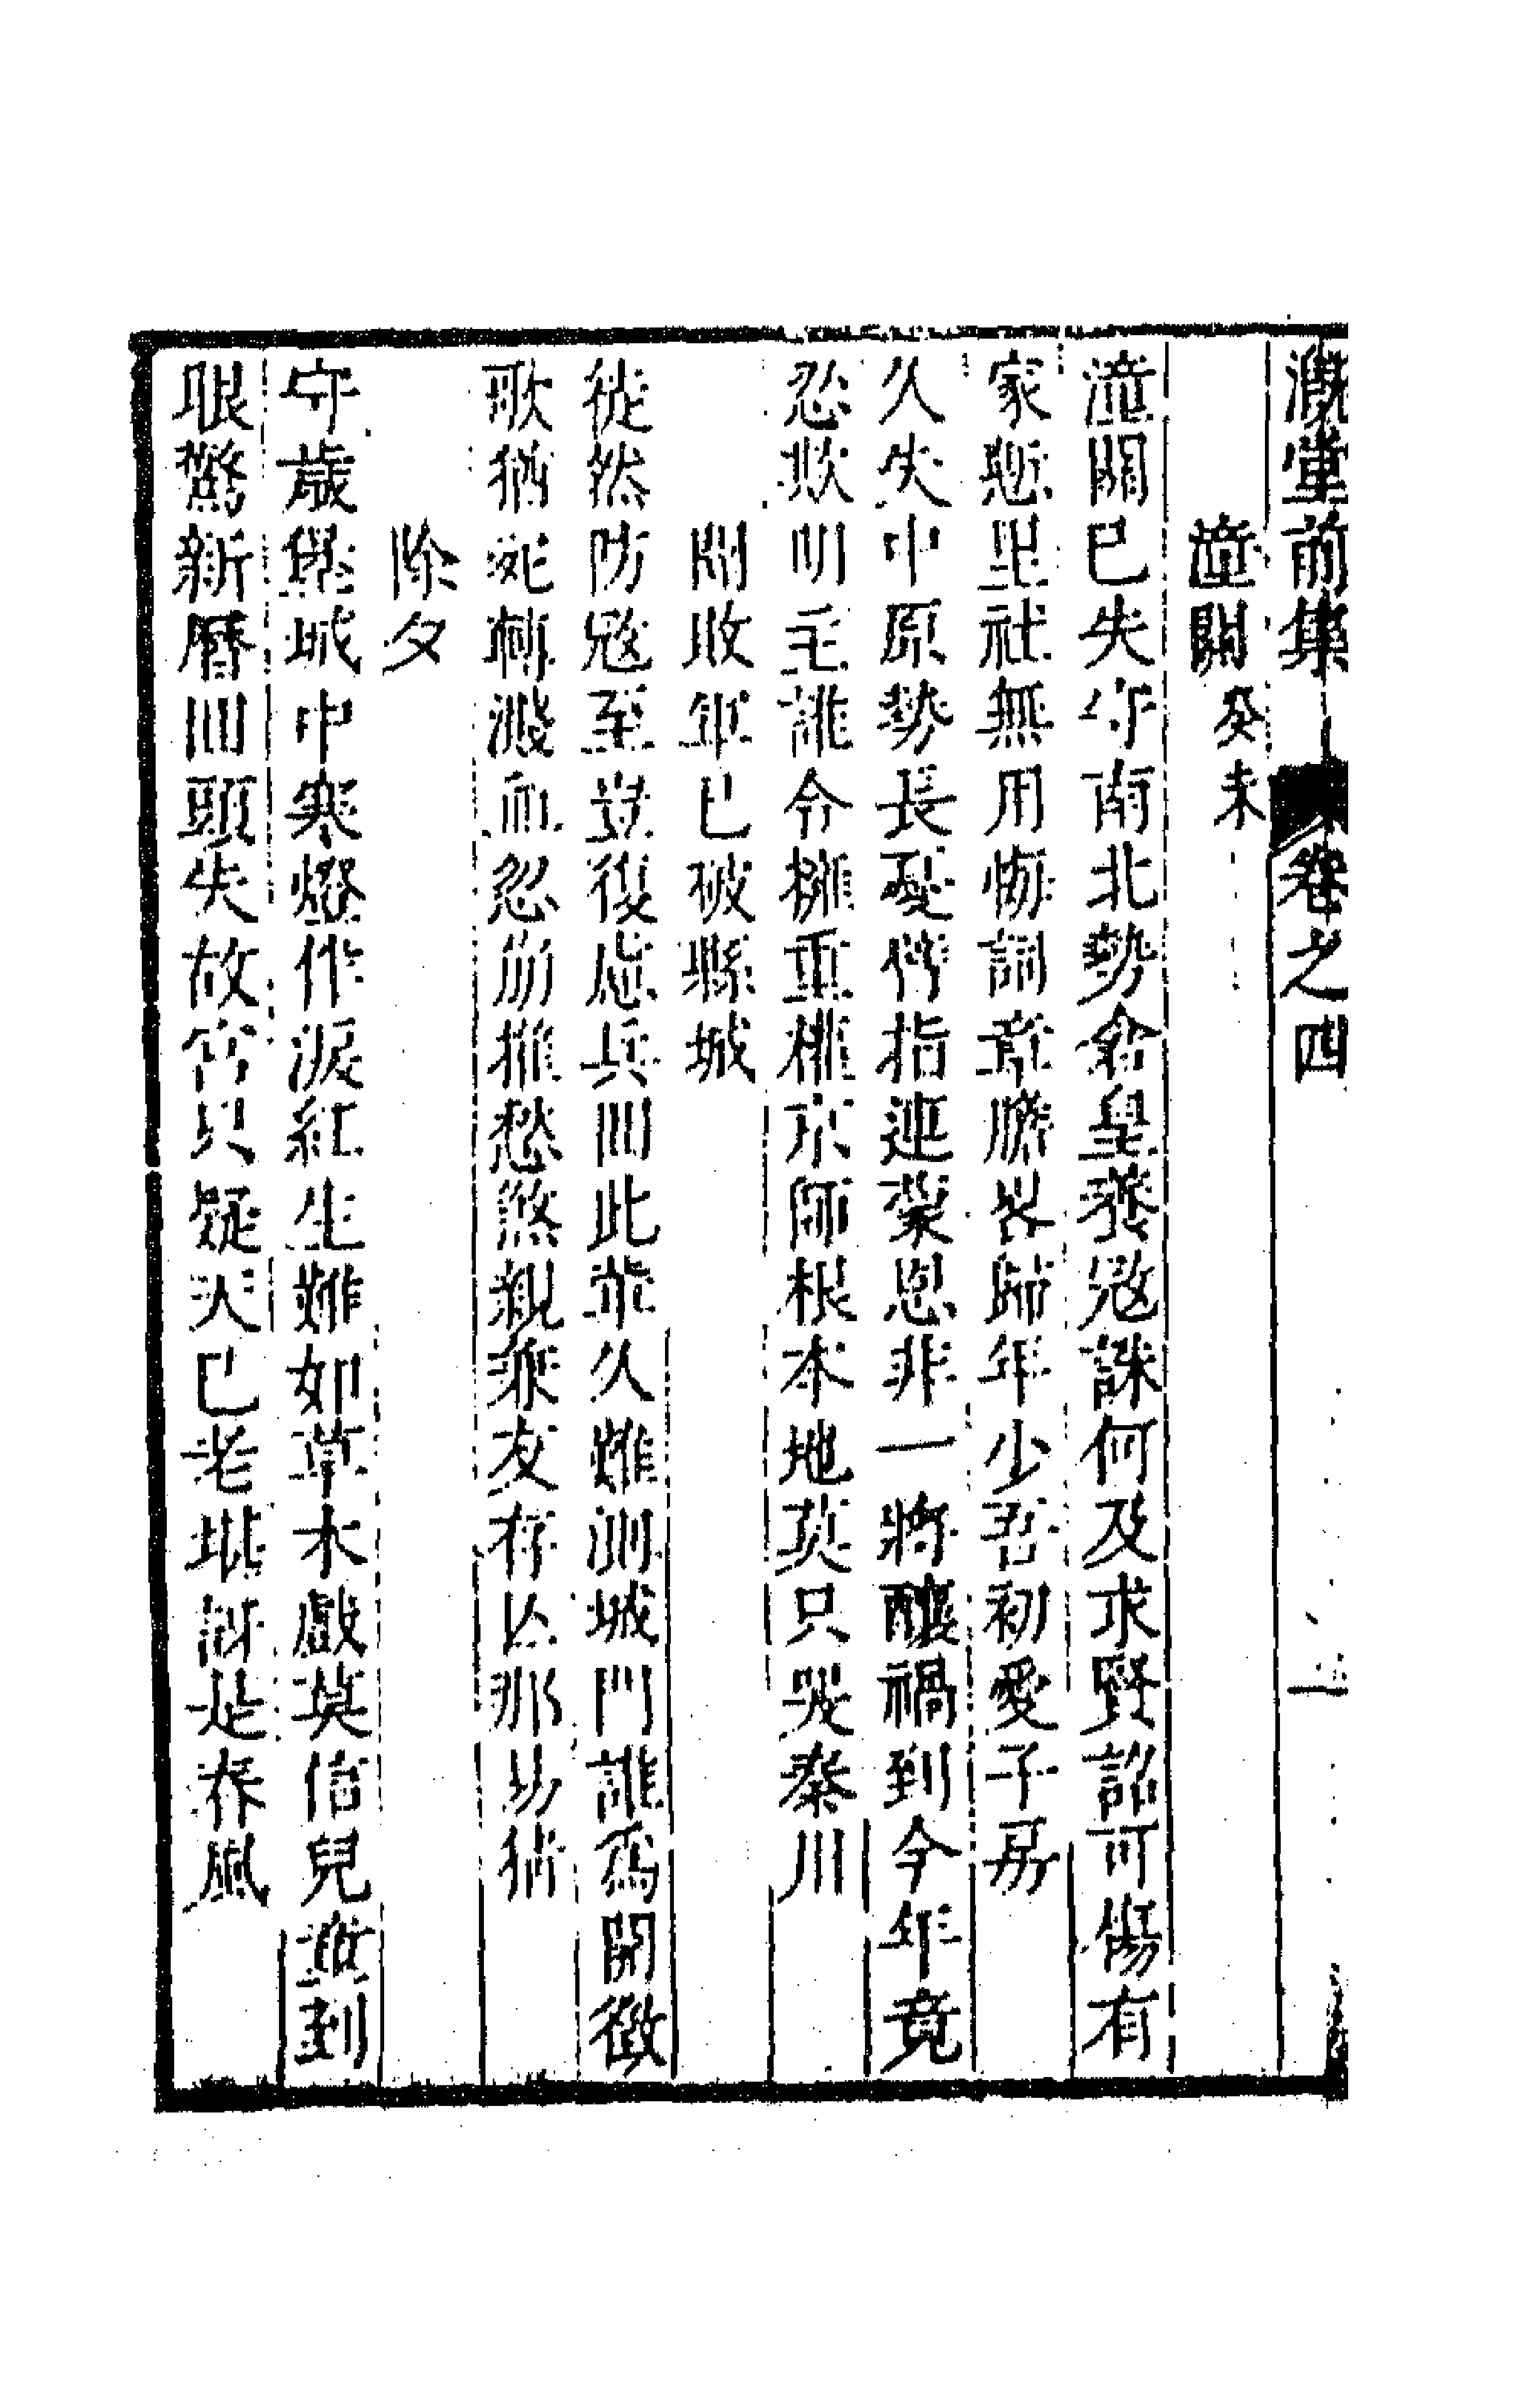 溉堂前集 卷之四 一
潼關癸未
潼關已失守南北勢俞皇養寇誅何及求賢詔可傷有
家愁里社無用悔詞章膽畧歸年少吾初愛子房
久失中原勢長憂臂指連蒙恩非一將釀禍到今年竟
忍欺明主誰令擁重權京師根本地莫只哭秦川
聞敗軍已破縣城
徒然防寇至豈復慮兵回此輩久難測城門誰爲開徵
歌猶宛轉濺血忽崩摧愁煞親兼友存亡那易猜
除夕
守歲與城中寒燈作淚紅生難如草木戲莫信兒童到
眼驚新曆回頭失故宮只疑天已老堪訝是春風